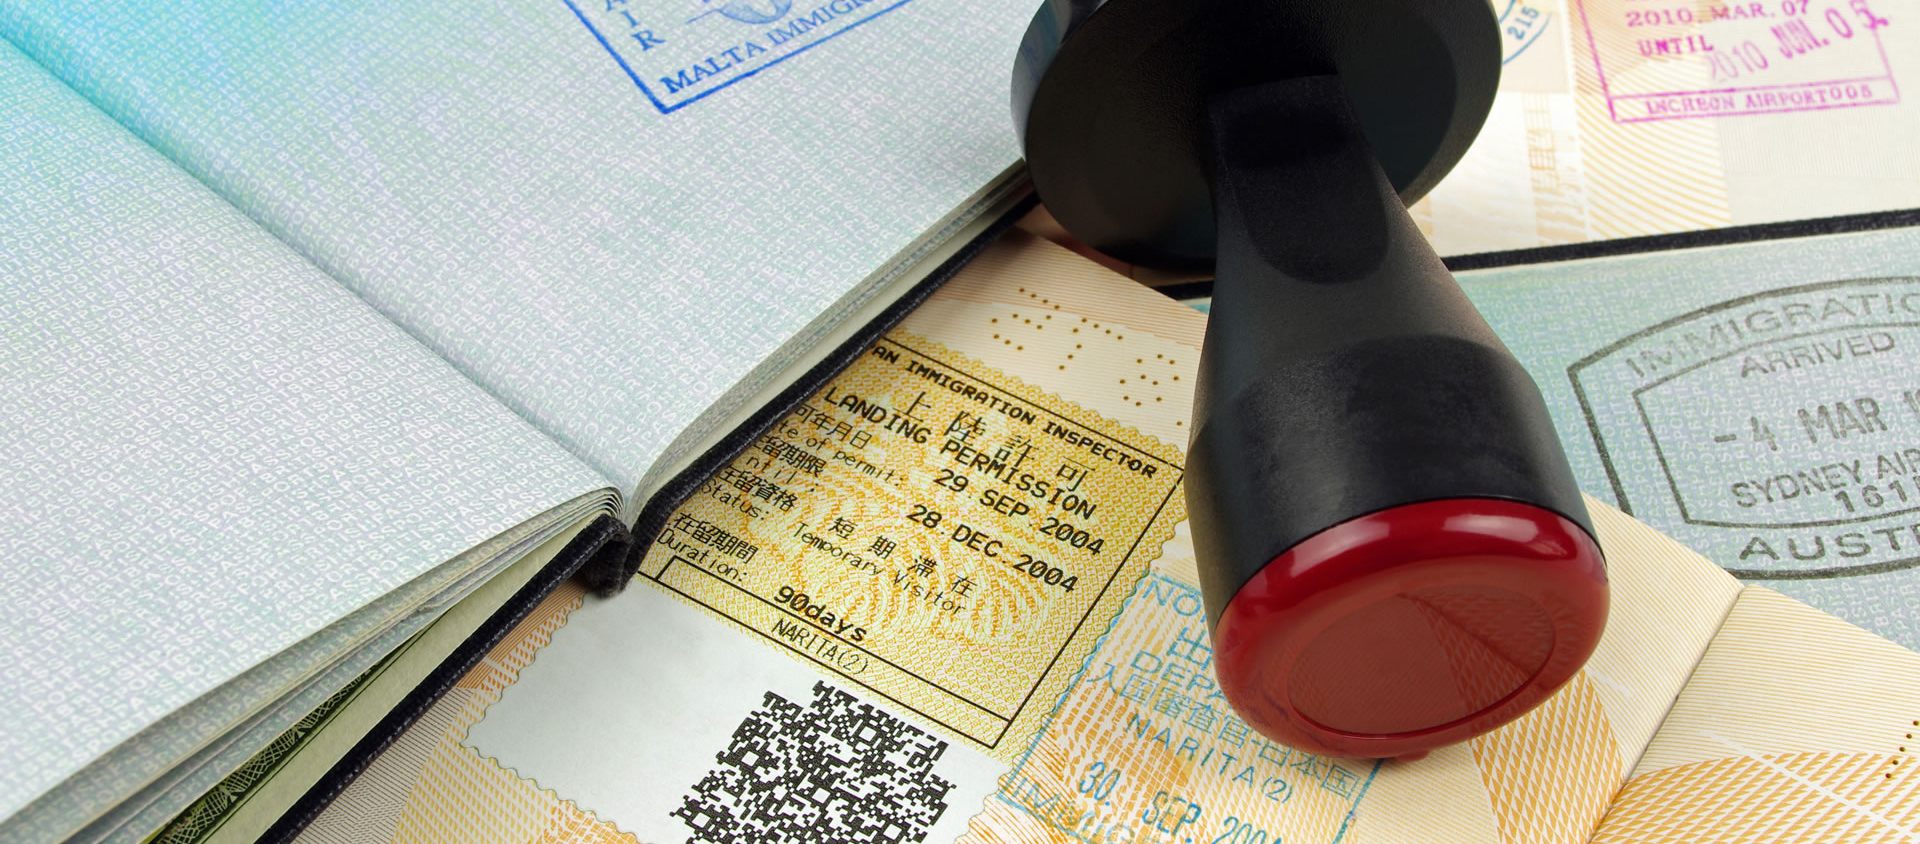 AIR
MALTA IMMIGR
215
2010. MAR. 07
UNTIL
2010 JUN. 05
INCHEON AIRPORT 008
IMMIGRATIO
ARRIVED
-4 MAR
SYDNEY AIR
1615
AUST
AN IMMIGRATION INSPECTOR
上陸許可
LANDING PERMISSION
可年月日
te of permit: 29. SEP. 2004
留期限
28. DEC. 2004
在留資格 短期滞在
Status: Temporary Visitor
在留期間
Duration:
90days
NARITA(2)
出
DEPA
入国審査官 日本国
NARITA(2)
30. SEP. 2004